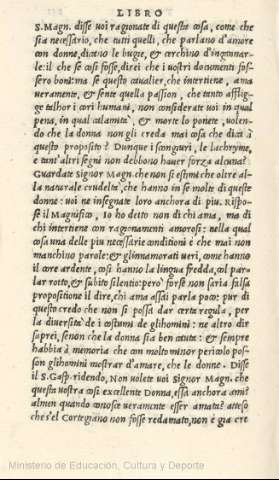 LIBRO
S.Magn. disse voi ragionate di questa cosa, come che
sia necessario, che tutti quelli, che parlano d'amore
con donne, dicano le bugie, & cerchino d'ingannar-
le: il che se cosi fosse, direi che i vostri documenti fos-
sero boni: ma se questo caualier, che intertiene, ama
ueramente, & sente quella passion, che tanto afflig-
ge talhor i cori humani, non considerate uoi in qual
pena, in qual calamita, & morte lo ponete, uolen-
do che la donna non gli creda mai cosa che dica à
questo proposito? Dunque i scongiuri, le lachryme,
e tant'altri segni non debbono hauer forza alcuna?
Guardate signor Magn. che non si estimi che oltre al-
la naturale crudeltà, che hanno in se molte di queste
donne: uoi ne insegnate loro anchora di piu. Rispo-
se il Magnifico, Io ho detto non di chi ama, ma di
chi intertiene con ragionamenti amorosi: nella qual
cosa una delle piu necessarie conditioni è che mai non
manchino parole: & gl'innamorati ueri, come hanno
il core ardente, cosi hanno la lingua fredda, col par-
lar rotto, & subito silentio: però forse non saria falsa
propositione il dire, chi ama assai parla poco: pur di
questo credo che non si possa dar certa regula, per
la diuersità de i costumi de gli homini: ne altro dir
saprei, senon che la donna sia ben cauta: & sempre
habbia à memoria che con molto minor periculo pos-
son gli homini mostrar d'amare, che le donne. Disse
il S.Gasp. ridendo, Non uolete uoi Signor Magn. che
questa uostra cosi excellente Donna, essa anchora ami?
almen quando conosce ueramente esser amata? atteso
che se'l Cortegiano non fosse redamato, non è già cre
Ministerio de Educación, Cultura y Deporte